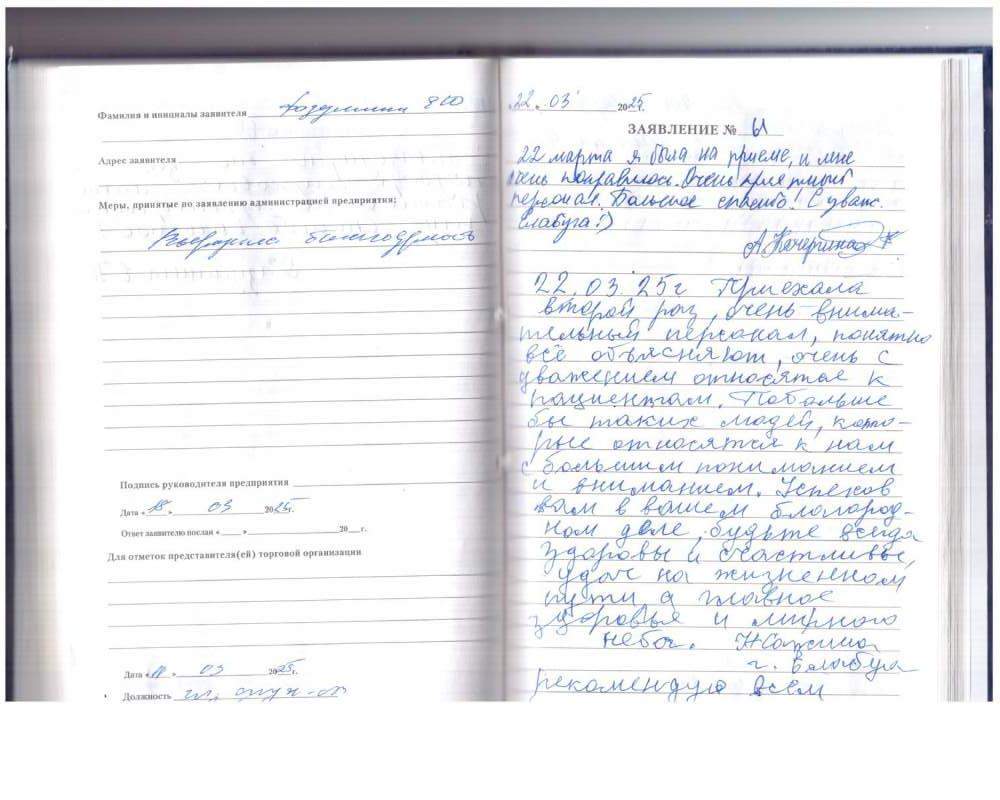 Фамилия и инициалы заявителя
Адрес заявителя
Меры, принятые по заявлению администрацией предприятия:
благодарность
Подпись руководителя предприятия
Дата « 18 » 03 2025г.
Ответ заявителю послан « » 20 г.
Для отметок представителя(ей) торговой организации
Дата « » 03 2025г.
Должность
22 . 03 2025г.
ЗАЯВЛЕНИЕ № 61
22 марта я была на приеме, и мне
очень понравилось. Очень приятный
персонал. Большое спасибо! С уваж.
Елабуга :)
22.03.25г Приехала
второй раз, очень внима-
тельный персонал, понятно
всё объясняют, очень с
уважением относятся к
пациентам. Побольше
бы таких людей, кото-
рые относятся к нам
с большим пониманием
и вниманием. Успехов
вам в вашем благород-
ном деле, будьте всегда
здоровы и счастливы,
удач на жизненном
пути, а главное
здоровья и мирного
неба.
г. Елабуга
рекомендую всем